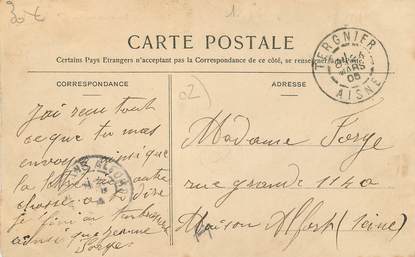 30 €
1.
CARTE POSTALE
Certains Pays Etrangers n'acceptant pas la Correspondance de ce côté, se renseigner
CORRESPONDANCE
ADRESSE
TERGNIER
MARS
AISNE
02
J'ai reçu tout
ce que tu mas
envoyé ainsi que
la
chose a te dire
je fini en
ainsi que
Forge
Madame Forge
rue grande 114
Maison Alfort (Seine)